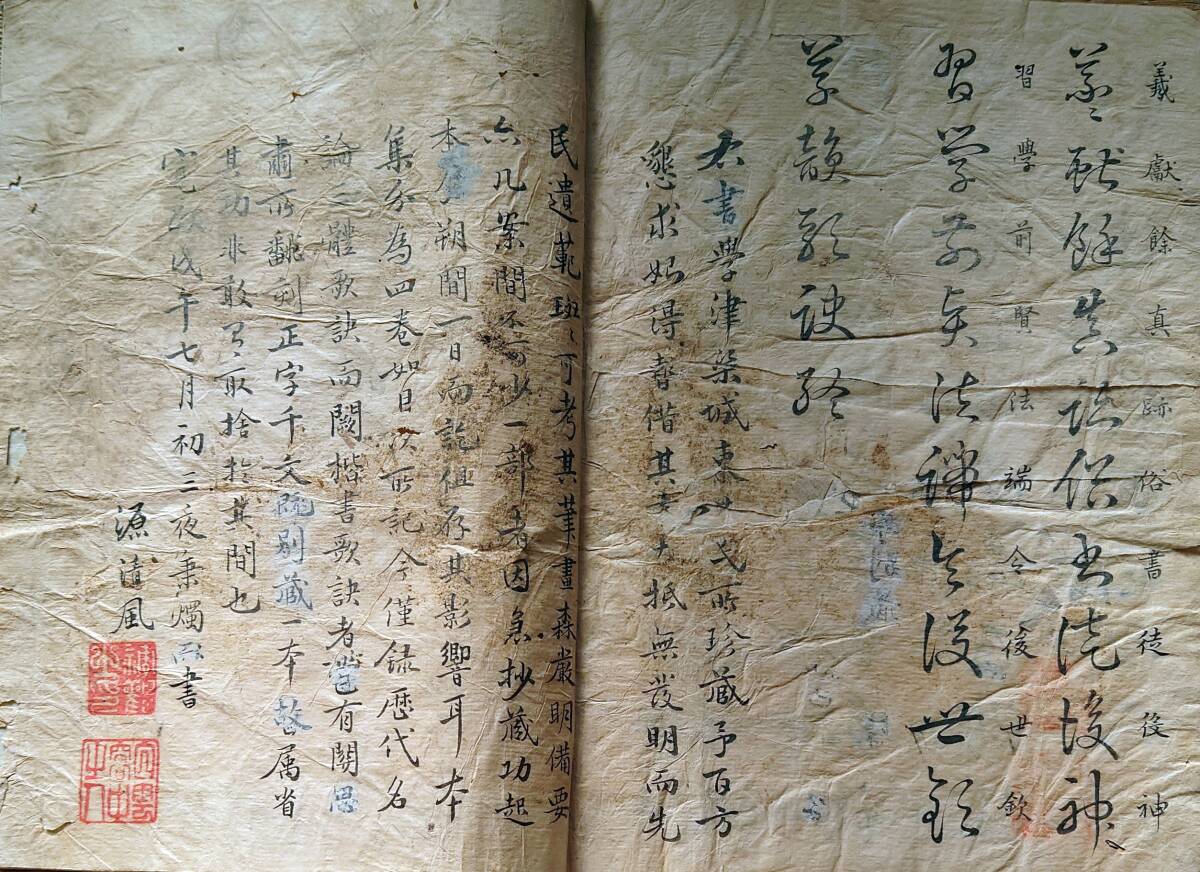 義獻餘真跡俗書徒後神
羲獻餘真跡俗書徒後神
習學前賢法端令後世欽
習學前賢法端令後世欽
草韻歌訣終
右書學津梁城東 所珍藏予百方
懇求始得暫借其書大抵無發明而先
民遺範班〻可考其筆畫森嚴明備要
亦几案間不可少一部者因急抄藏功起
本 朔間一日而訖但存其影響耳本
集分為四卷如目次所記今僅錄歷代名
論三體歌訣而闕楷書歌訣者 有關
肅所翻刻正字千文既別藏一本故屬省
其功非敢有取捨於其間也
戊午七月初三夜秉燭 書
源清風